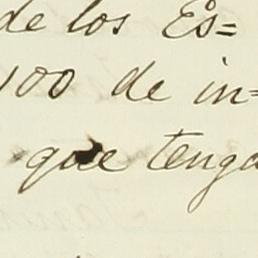 de los Es=
100 de in=
que tenga